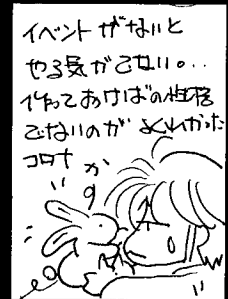 イベントがないと
やる気がでない。..
作っておけばの性格
でないのがよくわかった
コロナ か